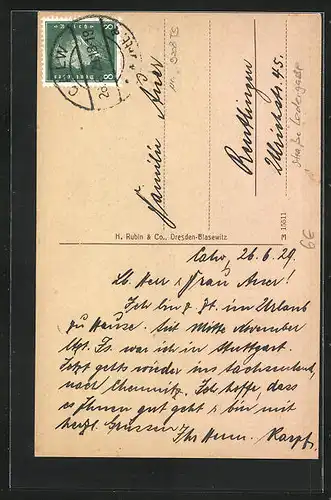 Familie Auer
Reutlingen
Ulrichstr. 45.
H. Rubin & Co., Dresden-Blasewitz
M 15511
6€
Calw, 26.6.29.
Lb. Herr & Frau Auer!
Ich bin z. Zt. im Urlaub
zu Hause. Seit Mitte November
war ich in Stuttgart.
Jetzt geht's wieder ins Sachsenland,
nach Chemnitz. Ich hoffe, dass
es Ihnen gut geht & bin mit
herzl. Grüssen
Ihr Herm. Rapp.
8
8
CALW